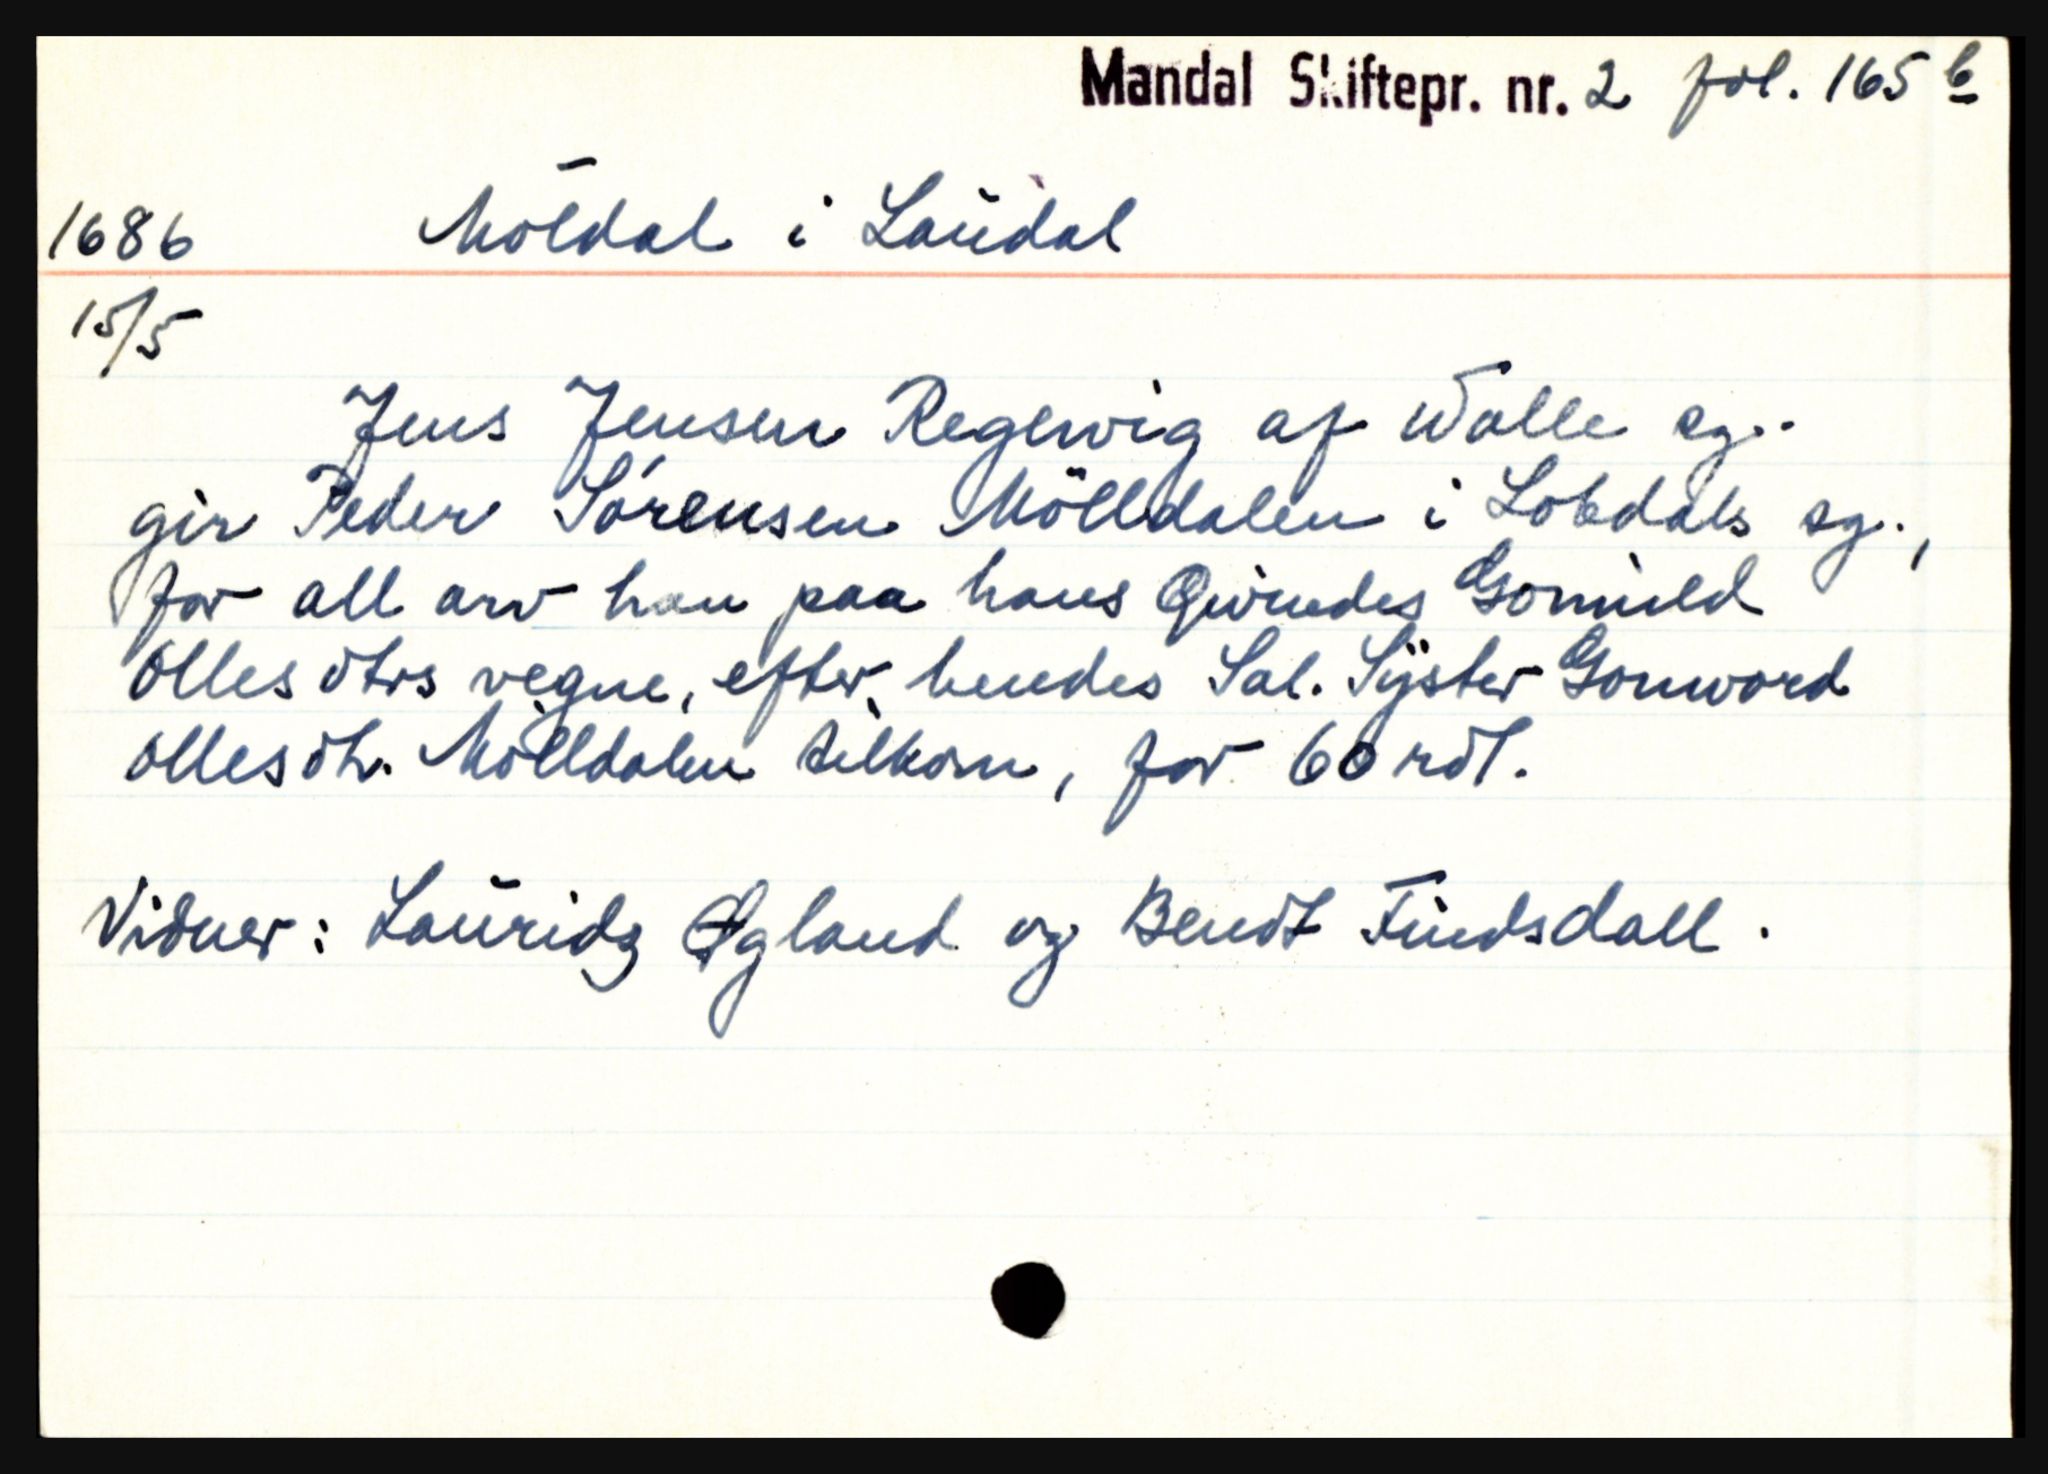 Mandal Skiftepr. nr. 2 fol. 165 b
1686 Mōldal i Laudal
15/5
Jens Jensen Regervig af Walle sg.
gir Peder Sörensen Mölldalen i Lobdals sg.,
for all arv han paa hans Qvindes Gonnild
Olles dtrs vegne, efter hendes Sal. Syster Gonword
Olles dtr. Mölldalen tilkom, for 60 rdl.
Vidner: Lauridz Øgland og Bendt Findsdall.